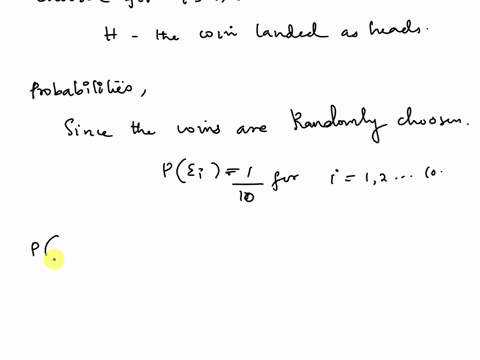 H - the coin landed as heads.
Probabilities,
Since the coins are Randomly choosen.
P(Ei) = 1/10 for i = 1, 2 ... 10.
P(